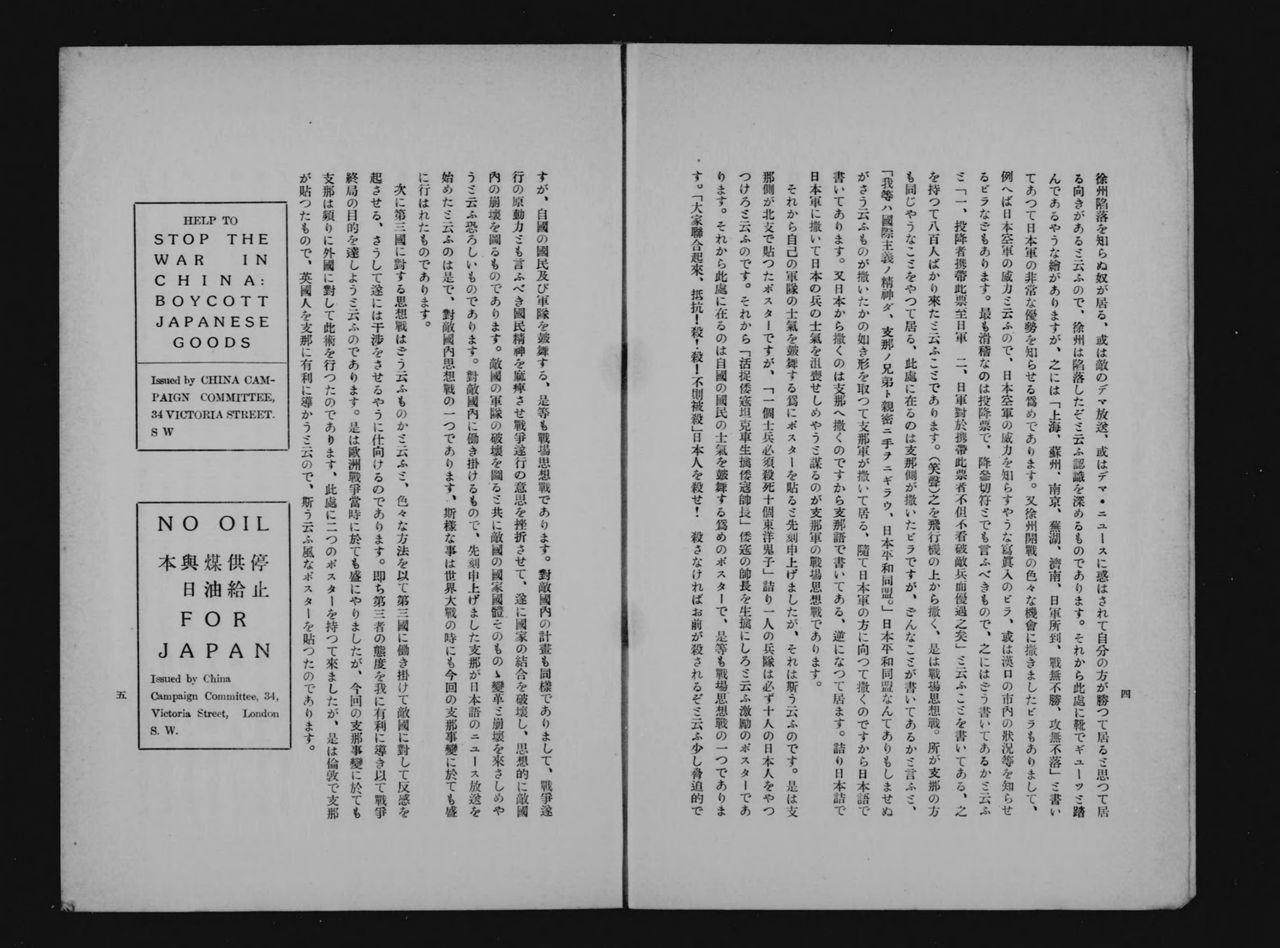 徐州陷落を知らぬ奴が居る、或は敵のデマ放送、或はデマ・ニュースに惑はされて自分の方が勝つて居ると思つて居
る向きがあると云ふので、徐州は陷落したぞと云ふ認識を深めるものであります。それから此處に靴でギューッと踏
んであるやうな繪がありますが、之には「上海、蘇州、南京、蕪湖、濟南、日軍所到、戰無不勝、攻無不落」と書い
てあつて日本軍の非常な優勢を知らせる爲めであります。又徐州開戰の色々な機會に撒きましたビラもありまして、
例へば日本空軍の威力と云ふので、日本空軍の威力を知らすやうな寫眞入のビラ、或は漢口の市內の狀況等を知らせ
るビラなどもあります。最も滑稽なのは投降票で、降參切符とでも言ふべきもので、之にはどう書いてあるかと云ふ
と「一、投降者携帶此票至日軍　二、日軍對於携帶此票者不但不看破敵兵而優遇之矣」と云ふことを書いてある、之
を持つて八百人ばかり來たと云ふことであります。(笑聲)之を飛行機の上から撒く、是は戰場思想戰。所が支那の方
も同じやうなことをやつて居る、此處に在るのは支那側が撒いたビラですが、どんなことが書いてあるかと言ふと、
「我等ハ國際主義ノ精神ダ、支那ノ兄弟ト親密ニ手ヲニギラウ、日本平和同盟。」日本平和同盟なんてありもしませぬ
がさう云ふものが撒いたかの如き形を取つて支那軍が撒いて居る、隨て日本軍の方に向つて撒くのですから日本語で
書いてあります。又日本から撒くのは支那へ撒くのですから支那語で書いてある、逆になつて居ます。詰り日本語で
日本軍に撒いて日本の兵の士氣を沮喪せしめやうと謀るのが支那軍の戰場思想戰であります。
それから自己の軍隊の士氣を皷舞する爲にポスターを貼ると先刻申上げましたが、それは斯う云ふのです。是は支
那側が北支で貼つたポスターですが、「一個士兵必須殺死十個東洋鬼子」詰り一人の兵隊は必ず十人の日本人をやつ
つけろと云ふのです。それから「活捉倭寇坦克車生擒倭寇師長」倭寇の師長を生擒にしろと云ふ激勵のポスターであ
ります。それから此處に在るのは自國の國民の士氣を皷舞する爲めのポスターで、是等も戰場思想戰の一つでありま
す。「大家聯合起來、抵抗！殺！殺！不則被殺」日本人を殺せ！　殺さなければお前が殺されるぞと云ふ少し脅迫的で
四
すが、自國の國民及び軍隊を皷舞する、是等も戰場思想戰であります。對敵國內の計畫も同樣でありまして、戰爭遂
行の原動力とも言ふべき國民精神を痲痺させ戰爭遂行の意思を挫折させて、遂に國家の結合を破壞し、思想的に敵國
內の崩壞を圖るものであります。敵國の軍隊の破壞を圖ると共に敵國の國家國體そのものゝ變革と崩壞を來さしめや
うと云ふ恐ろしいものであります。對敵國內に働き掛けるもので、先刻申上げました支那が日本語のニュース放送を
始めたと云ふのは是で、對敵國內思想戰の一つであります、斯樣な事は世界大戰の時にも今回の支那事變に於ても盛
に行はれたものであります。
次に第三國に對する思想戰はどう云ふものかと云ふと、色々な方法を以て第三國に働き掛けて敵國に對して反感を
起させる、さうして遂には干涉をさせるやうに仕向けるのであります。卽ち第三者の態度を我に有利に導き以て戰爭
終局の目的を達しようと云ふのであります。是は歐洲戰爭當時に於ても盛にやりましたが、今回の支那事變に於ても
支那は頻りに外國に對して此術を行つたのであります、此處に二つのポスターを持つて來ましたが、是は倫敦で支那
が貼つたもので、英國人を支那に有利に導かうと云ので、斯う云ふ風なポスターを貼つたのであります。
HELP TO
STOP THE
WAR IN
CHINA:
BOYCOTT
JAPANESE
GOODS
Issued by CHINA CAM-
PAIGN COMMITTEE,
34 VICTORIA STREET.
S W
NO OIL
本與煤供停
日油給止
FOR
JAPAN
Issued by China
Campaign Committee, 34,
Victoria Street, London
S. W.
五